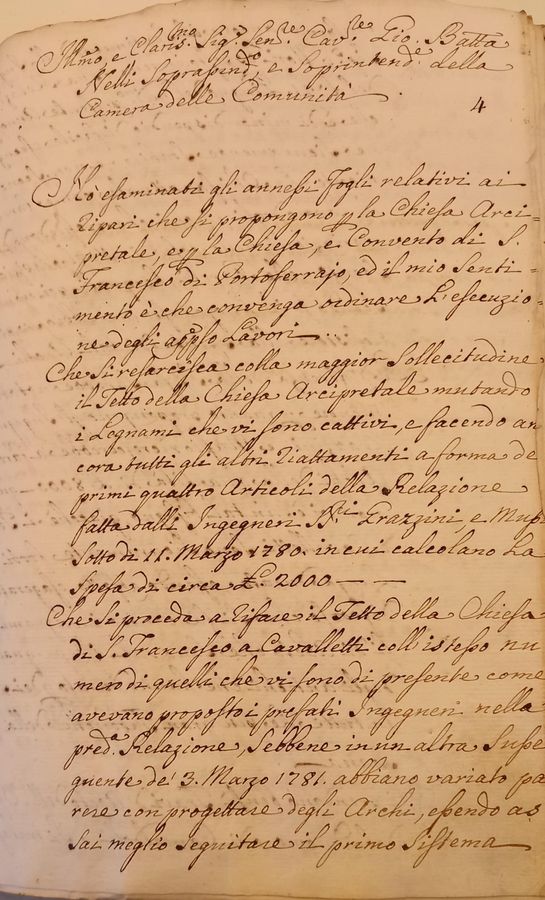 Illmo, e Clarismo Sigr. Senre. Cavre. Gio. Batta
Nelli Soprasinddo, e Soprintende della
Camera delle Comunità.
4
Hò esaminati gli annessi fogli relativi ai
ripari che si propongono p la Chiesa Arci=
pretale, e p la Chiesa, e Convento di S.
Francesco di Portoferrajo, ed il mio senti-
mento è che convenga ordinare l'esecuzio-
ne degli Lavori.
Che si resarcisca colla maggior sollecitudine
il Tetto della Chiesa Arcipretale mutando
i Legnami che vi sono cattivi, e facendo an
cora tutti gli altri riattamenti a forma de
primi quattro Articoli della Relazione
fatta dalli Ingegneri Grazzini, e
sotto di 11. Marzo 1780. in cui calcolano la
spesa di circa £. 2000 — —
Che si proceda a rifare il Tetto della Chiesa
di S. Francesco a Cavalletti coll'istesso nu
mero di quelli che vi sono di presente come
avevano proposto i prefati Ingegneri nella
preda. Relazione, sebbene in un altra susse
guente de' 3. Marzo 1781. abbiano variato pa
rere con progettare degli Archi, essendo as
sai meglio seguitare il primo sistema